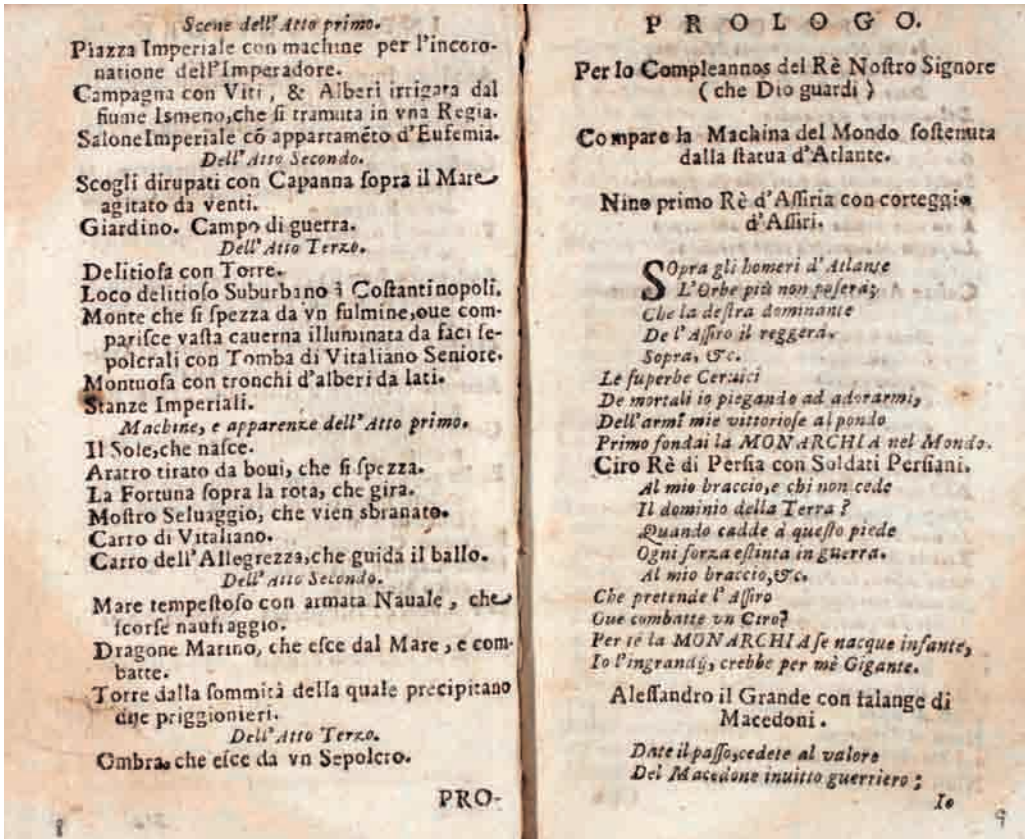 Scene dell'Atto primo.
Piazza Imperiale con machine per l'incoro-
natione dell'Imperadore.
Campagna con Viti, & Alberi irrigata dal
fiume Ismeno,che ſi tramuta in vna Regia.
Salone Imperiale cō appartamēto d'Eufemia.
Dell'Atto Secondo.
Scogli dirupati con Capanna ſopra il Mare
agitato da venti.
Giardino. Campo di guerra.
Dell'Atto Terzo.
Delitioſa con Torre.
Loco delitioſo Suburbano à Coſtantinopoli.
Monte che ſi ſpezza da vn fulmine,oue com-
pariſce vaſta cauerna illuminata da faci ſe-
polcrali con Tomba di Vitaliano Seniore.
Montuoſa con tronchi d'alberi da lati.
Stanze Imperiali.
Machine, e apparenze dell'Atto primo.
Il Sole,che naſce.
Aratro tirato da boui, che ſi ſpezza.
La Fortuna ſopra la rota, che gira.
Moſtro Seluaggio, che vien sbranato.
Carro di Vitaliano.
Carro dell'Allegrezza,che guida il ballo.
Dell'Atto Secondo.
Mare tempeſtoſo con armata Nauale, che
ſcorſe naufraggio.
Dragone Marino, che eſce dal Mare, e com-
batte.
Torre dalla ſommità della quale precipitano
due priggionieri.
Dell'Atto Terzo.
Ombra, che eſce da vn Sepolcro.
PRO-
8
PROLOGO.
Per lo Compleannos del Rè Noſtro Signore
( che Dio guardi )
Compare la Machina del Mondo ſoſtenuta
dalla ſtatua d'Atlante.
Nino primo Rè d'Aſſiria con corteggio
d'Aſſiri.
SOpra gli homeri d'Atlante
L'Orbe più non poſerà;
Che la deſtra dominante
De l'Aſſiro il reggerà.
Sopra, &c.
Le ſuperbe Ceruici
De mortali io piegando ad adorarmi,
Dell'armi mie vittorioſe al pondo
Primo fondai la MONARCHIA nel Mondo.
Ciro Rè di Perſia con Soldati Perſiani.
Al mio braccio,e chi non cede
Il dominio della Terra ?
Quando cadde à queſto piede
Ogni forza eſtinta in guerra.
Al mio braccio,&c.
Che pretende l'Aſſiro
Oue combatte vn Ciro?
Per te la MONARCHIA ſe nacque infante,
Io l'ingrandij, crebbe per mè Gigante.
Aleſſandro il Grande con falange di
Macedoni.
Date il paſſo,cedete al valore
Del Macedone inuitto guerriero ;
Io
9